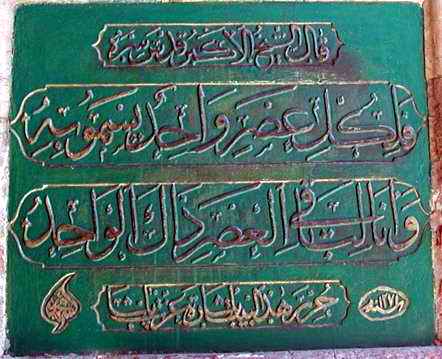 قال الشيخ الأكبر قدس سره
ولكل عصر واحد يسمو به
وانا لباقي العصر ذاك الواحد
حرر هذا البيت باشارة باشا